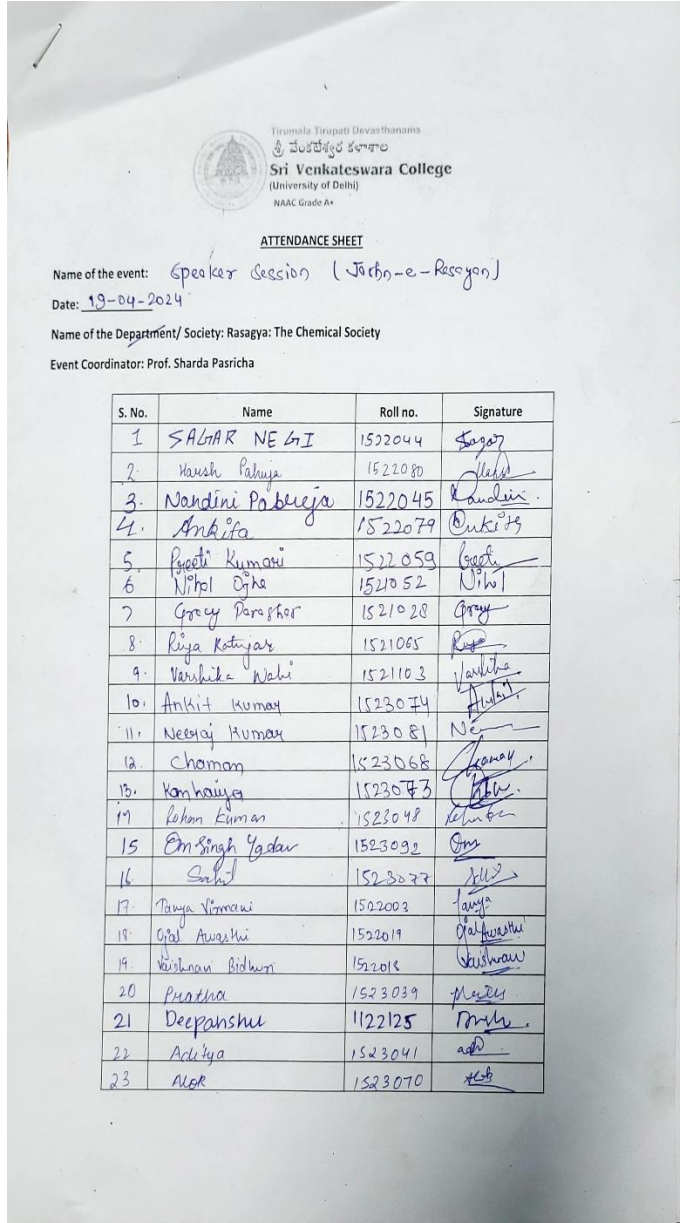 Tirumala Tirupati Devasthanams
శ్రీ వేంకటేశ్వర కళాశాల
Sri Venkateswara College
(University of Delhi)
NAAC Grade A+
ATTENDANCE SHEET
Name of the event: Speaker Session (Jashn-e-Rasayan)
Date: 19-04-2024
Name of the Department/ Society: Rasagya: The Chemical Society
Event Coordinator: Prof. Sharda Pasricha
S. No. Name Roll no. Signature
1 SAGAR NEGI 1522044 Sagar
2. Harsh Pahuja 1522080
3. Nandini Pabreja 1522045 Nandini
4. Ankita 1522079 Ankita
5. Preeti Kumari 1522059 Preeti
6 Nihal Ojha 1521052 Nihal
7 Gracy Parashar 1521028 Gracy
8. Riya Katiyar 1521065
9. Varshika Wahi 1521103 Varshika
10. Ankit Kumar 1523074
11. Neeraj Kumar 1523081
12. Chaman 1523068
13. Kanhaiya 1523073
14 Rohan Kumar 1523048
15 Om Singh Yadav 1523092 Om
16. Sahil 1523077
17. Tanya Virmani 1522003 Tanya
18. Ojal Awasthi 1522019 Ojal Awasthi
19. Vaishnavi Bidhuri 1522018 Vaishnavi
20 Pratha 1523039
21 Deepanshu 1122125
22 Aditya 1523041
23 Alok 1523070 Alok